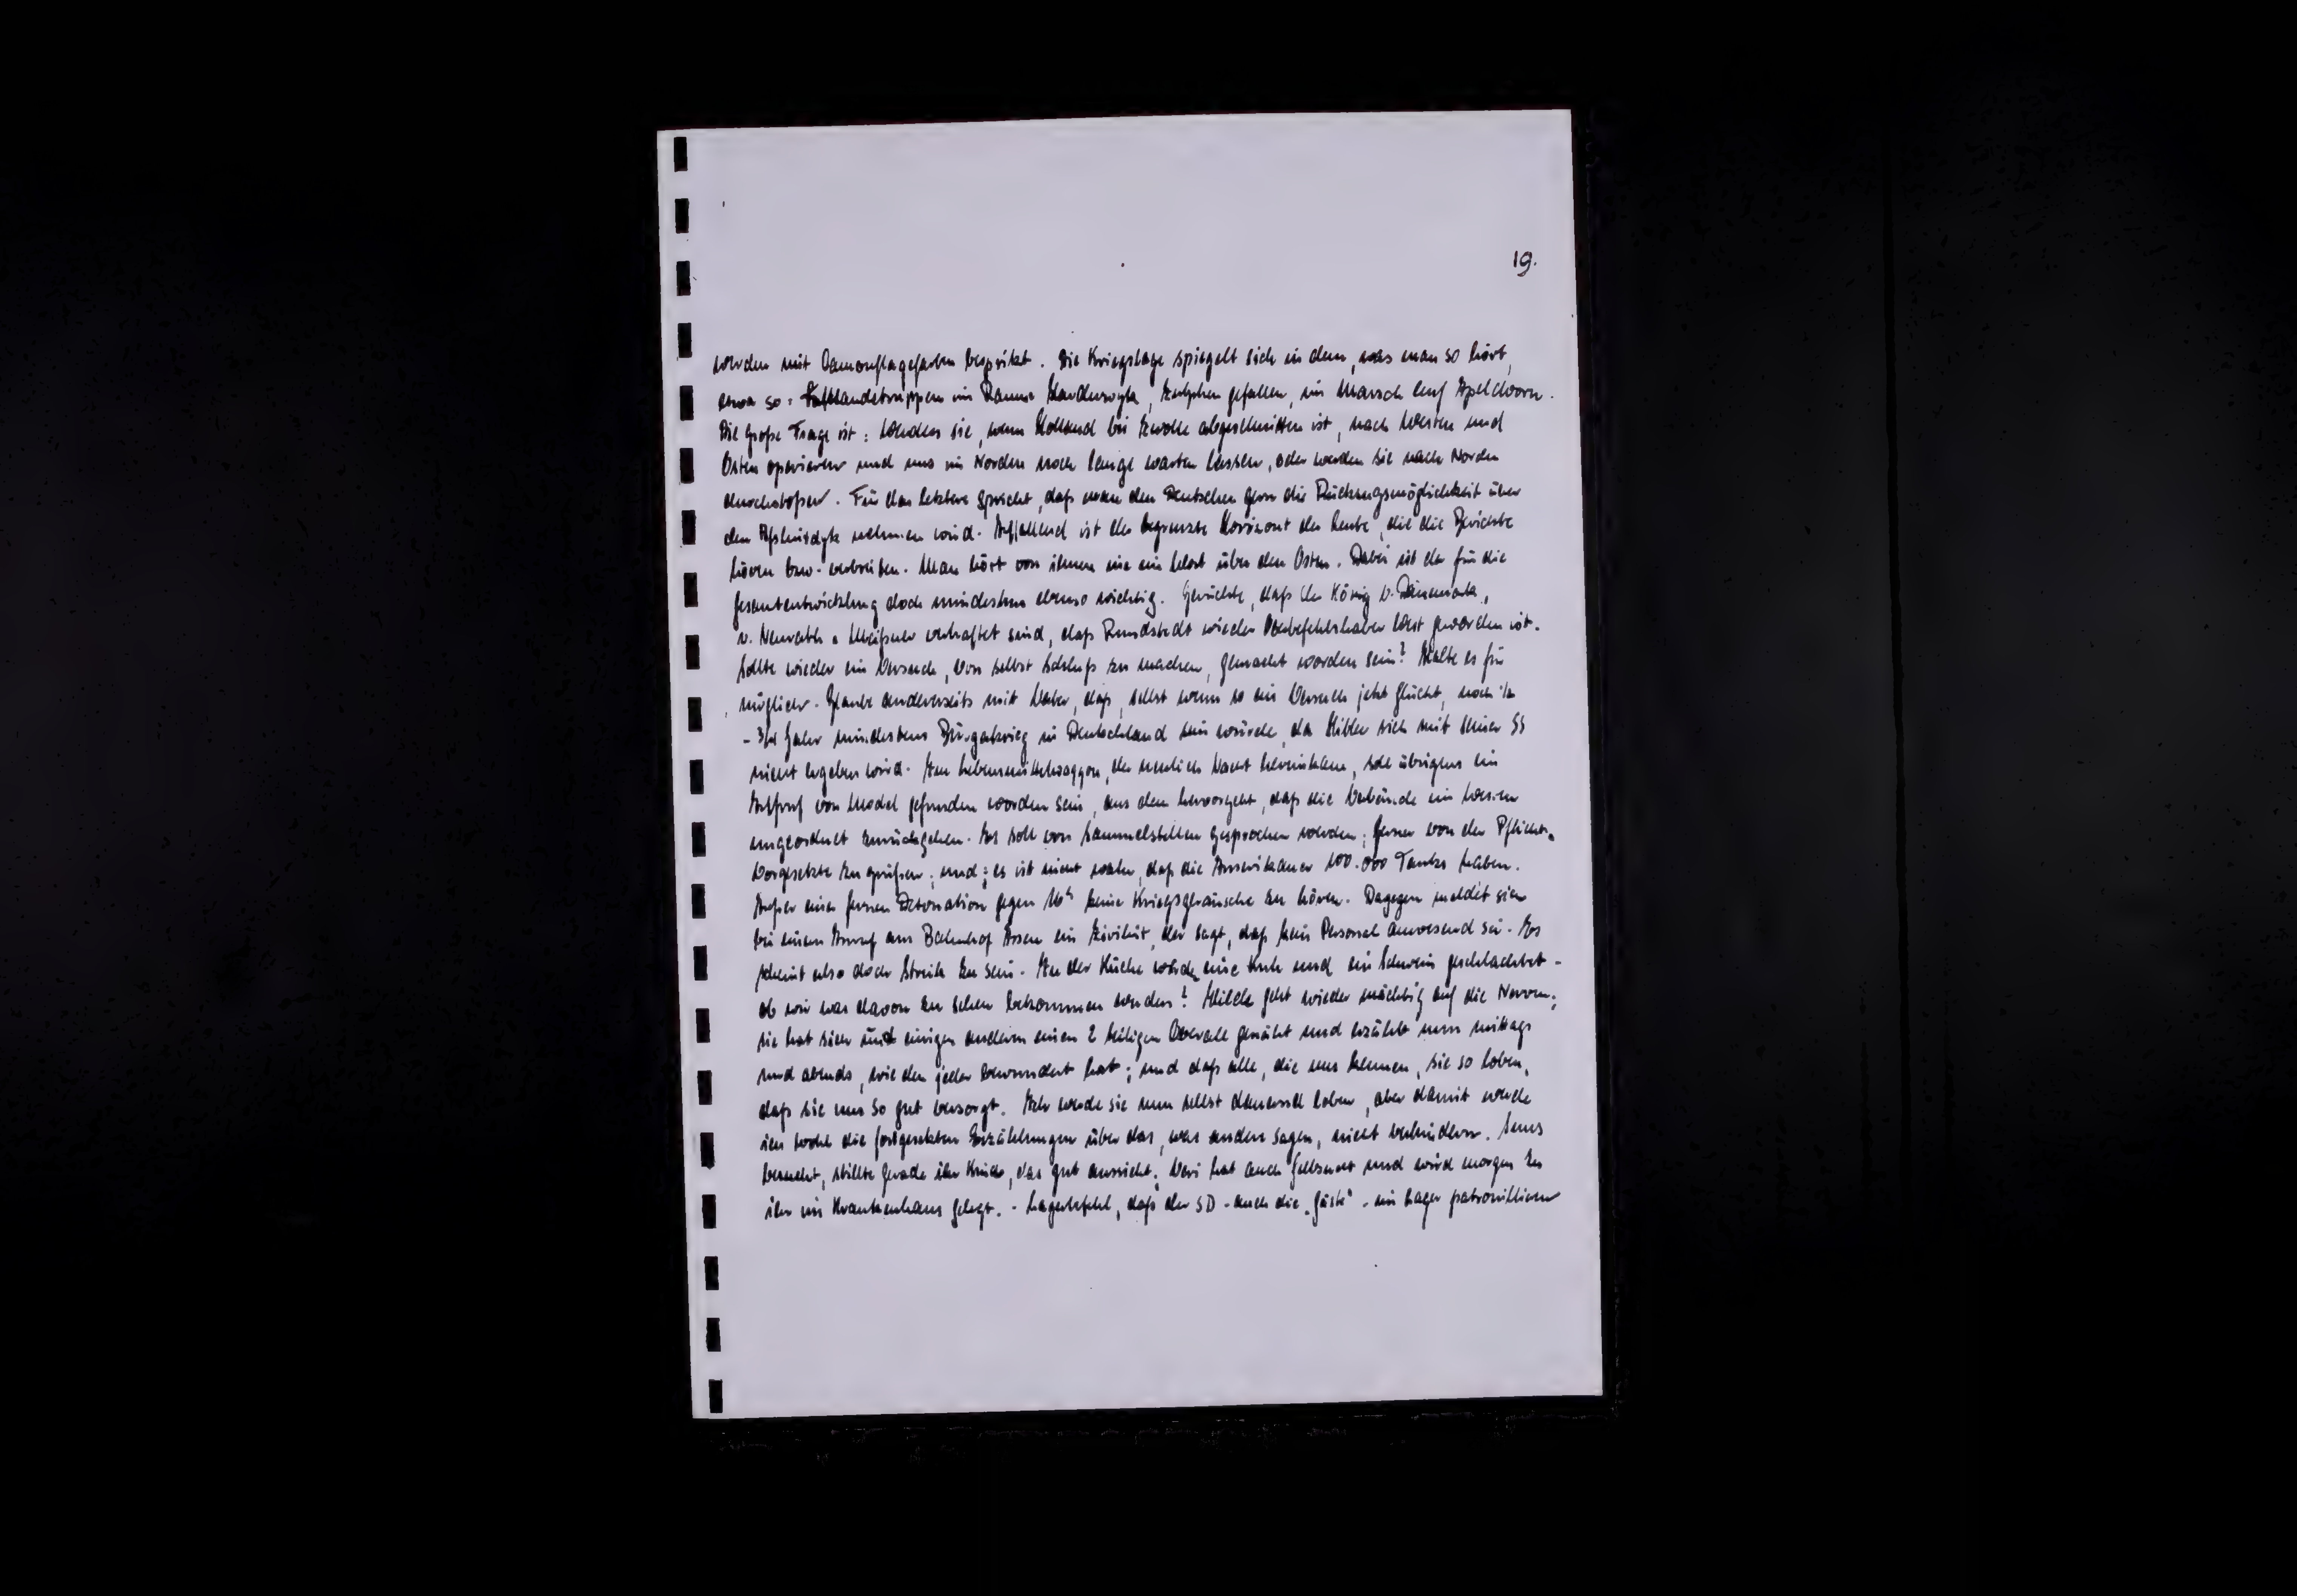 19.
werden mit Camouflagefarben bespritzt. Die Kriegslage spiegelt sich in dem, was man so hört,
etwa so: Luftlandetruppen im Raume Harderwijk, Zutphen gefallen, im Marsch auf Apeldoorn.
Die große Frage ist: Werden sie, wenn Holland bei Zwolle abgeschnitten ist, nach Westen und
Osten operieren und uns im Norden noch lange warten lassen, oder werden sie nach Norden
durchstoßen. Für das letztere spricht, daß man den Deutschen gern die Rückzugsmöglichkeit über
den Afsluitdyk nehmen wird. Auffallend ist der begrenzte Horizont der Leute, die die Berichte
hören bzw. verbreiten. Man hört von ihnen nie ein Wort über den Osten. Dabei ist der für die
Gesamtentwicklung doch mindestens ebenso wichtig. Gerüchte, daß der König v. Dänemark,
v. Neurath u. Meißner verhaftet sind, daß Rundstedt wieder Oberbefehlshaber West geworden ist.
Sollte wieder ein Versuch, von selbst Schluß zu machen, gemacht worden sein? Halte es für
möglich. Glaube andererseits mit Weber, daß, selbst wenn so ein Versuch jetzt glückt, noch ½
- ¾ Jahr mindestens Bürgerkrieg in Deutschland sein würde, da Hitler sich mit seiner SS
nicht ergeben wird. Im Lebensmittelwaggon, der neulich Nacht hereinkam, soll übrigens ein
Aufruf von Model gefunden worden sein, aus dem hervorgeht, daß die Verbände im Westen
ungeordnet zurückgehen. Es soll von Sammelstellen gesprochen werden; ferner von der Pflicht,
Vorgesetzte zu grüßen; und: es ist nicht wahr, daß die Amerikaner 100.000 Tanks haben.
Außer einer fernen Detonation gegen 16h keine Kriegsgeräusche zu hören. Dagegen meldet sich
bei einem Anruf am Bahnhof Assen ein Zivilist, der sagt, daß kein Personal anwesend sei. Es
scheint also doch Streik zu sein. In der Küche wurde eine Kuh und ein Schwein geschlachtet -
ob wir was davon zu sehen bekommen werden? Hilde geht wieder mächtig auf die Nerven;
sie hat sich mit einigen andern einen 2 teiligen Overall genäht und erzählt nun mittags
und abends, wie den jeder bewundert hat; und daß alle, die uns kennen, sie so loben,
daß sie uns so gut versorgt. Ich werde sie nun selbst dauernd loben, aber damit werde
ich wohl die fortgesetzten Erzählungen über das, was andere sagen, nicht verhindern.
besucht, stillte gerade ihr Kind, das gut aussieht; hat auch Gelbsucht und wird morgen zu
ihr ins Krankenhaus gelegt. - Lagerbefehl, daß der SD - auch die „Gäste" - im Lager patrouillieren